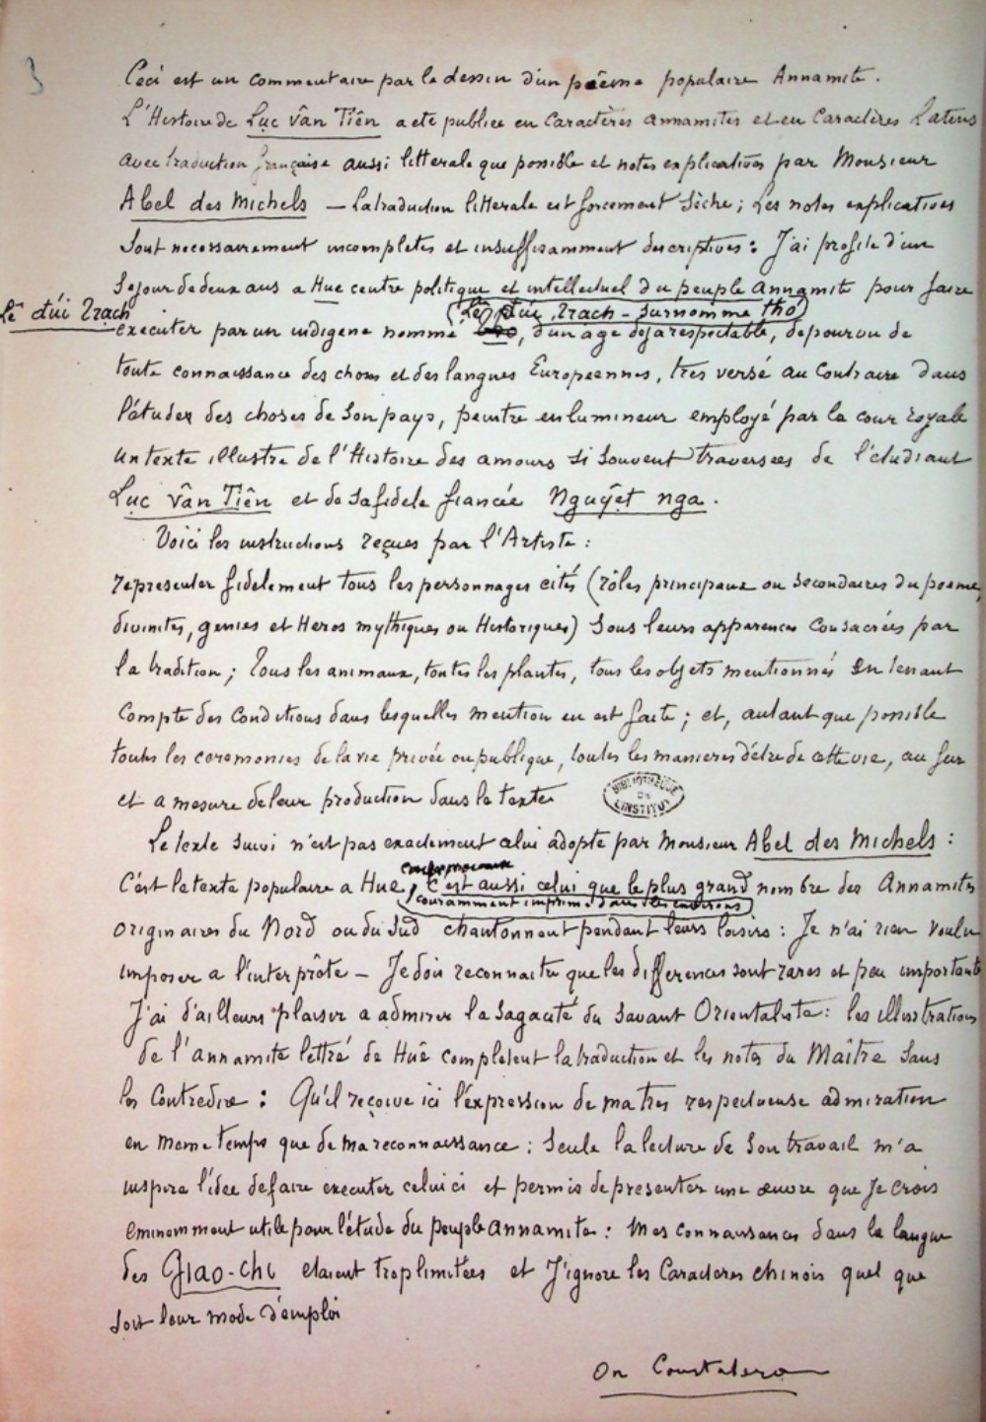 3
Ceci est un commentaire par le dessin d'un poëme populaire Annamite.
L'Histoire de Luc Vân Tiên a eté publiee en Caractères annamites et en Caractères Latins
avec traduction française aussi litterale que possible et notes explicatives par Monsieur
Abel des Michels — La traduction litterale est forcement sèche; Les notes explicatives
sont necessairement incompletes et insuffisamment descriptives: J'ai profité d'un
Sejour de deux ans a Hue centre politique et intellectuel du peuple Annamite pour faire
Lê đúi Trạch
(Lê đúi Trach - surnomme Thó)
executer par un indigene nommé , d'un âge deja respectable, depourvu de
toute connaissance des choses et des langues Europeennes, tres versé au Contraire dans
l'étude des choses de son pays, peintre enlumineur employé par la cour royale
un texte illustre de l'Histoire des amours si souvent traversees de l'étudiant
Luc Vân Tiên et de sa fidele fiancée Nguyệt nga.
Voici les instructions reçues par l'Artiste:
representer fidelement tous les personnages cités (rôles principaux ou secondaires du poeme,
divinites, genies et Heros mythiques ou Historiques) Sous leurs apparences Consacrées par
la tradition; Tous les animaux, toutes les plantes, tous les objets mentionnés En tenant
Compte des Conditions dans lesquelles mention en est faite; et, autant que possible
toutes les ceremonies de la vie privée ou publique, toutes les manieres d'être de cette vie, au fur
et a mesure de leur production dans le texte
BIBLIOTHEQUE
DE
L'INSTITUT
Le texte suivi n'est pas exactement celui adopté par Monsieur Abel des Michels:
C'est le texte populaire a Hue, c'est aussi celui que le plus grand nombre des Annamites
couramment imprimé dans les environs
originaires du Nord ou du Sud chantonnent pendant leurs loisirs: Je n'ai rien voulu
imposer a l'interprête — Je dois reconnaitre que les differences sont rares et peu importantes
J'ai d'ailleurs plaisir a admirer la Sagacité du Savant Orientaliste: les illustrations
de l'annamite lettré de Huê completent la traduction et les notes du Maître Sans
les Contredire: Qu'il reçoive ici l'expression de ma tres respectueuse admiration
en meme temps que de ma reconnaissance: Seule la lecture de Son travail m'a
inspire l'idee de faire executer celui ci et permis de presenter une œuvre que Je crois
eminemment utile pour l'étude du peuple Annamite: Mes connaissances dans la langue
des Giao-chi etaient trop limitées et J'ignore les Caracteres chinois quel que
soit leur mode d'emploi